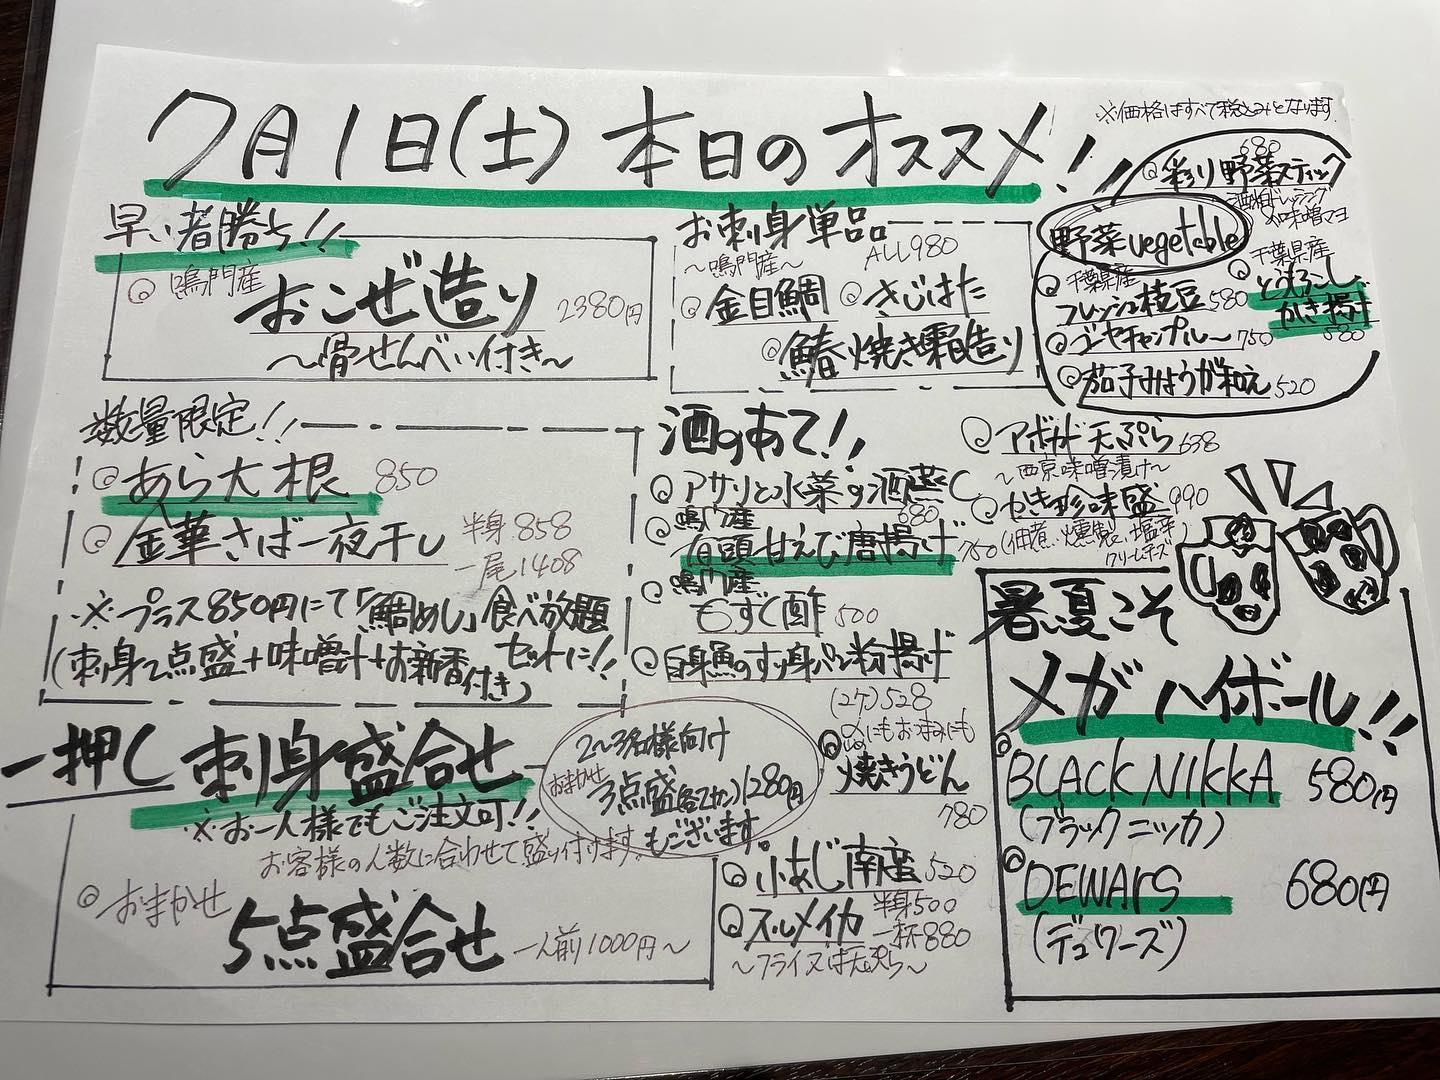 7月1日(土) 本日のオススメ!!
※価格はすべて税込みとなります
早い者勝ち!!
◎鳴門産
おこぜ造り 2380円
〜骨せんべい付き〜
お刺身単品
〜鳴門産〜 ALL980
◎金目鯛 ◎きじはた
◎鰆焼き霜造り
野菜vegetable
680
◎彩り野菜スティック
酒粕ドレッシング
味噌マヨ
◎千葉県産
フレッシュ枝豆 580
◎千葉県産
とうもろこし
かき揚げ
580
◎ゴーヤチャンプルー 750
◎茄子みょうが和え 520
数量限定!!
◎あら大根 850
◎金華さば一夜干し 半身 858
一尾 1408
※プラス850円にて「鯛めし」食べ放題
(刺身2点盛+味噌汁+お新香付き) セットに!!
酒のあて!!
◎アサリと水菜の酒蒸し
680
◎鳴門産
有頭甘えび唐揚げ 750
◎鳴門産
もずく酢 500
◎白身魚のすり身パン粉揚げ
(2ケ)528
◎〆にもおつまみにも
焼きうどん
780
◎小あじ南蛮 520
◎スルメイカ 半身500
一杯880
〜フライ又は天ぷら〜
◎アボカド天ぷら 638
〜西京味噌漬け〜
◎かき珍味盛 990
(佃煮、燻製、塩辛
クリームチーズ)
一押し 刺身盛合せ
※お一人様でもご注文可!!
お客様の人数に合わせて盛り付けます。
2〜3名様向け
おまかせ
3点盛(各2カン)1280円
もございます。
◎おまかせ
5点盛合せ 一人前1000円〜
暑い夏こそ
メガハイボール!!
◎BLACK NIKKA 580円
(ブラックニッカ)
◎DEWARS 680円
(デュワーズ)